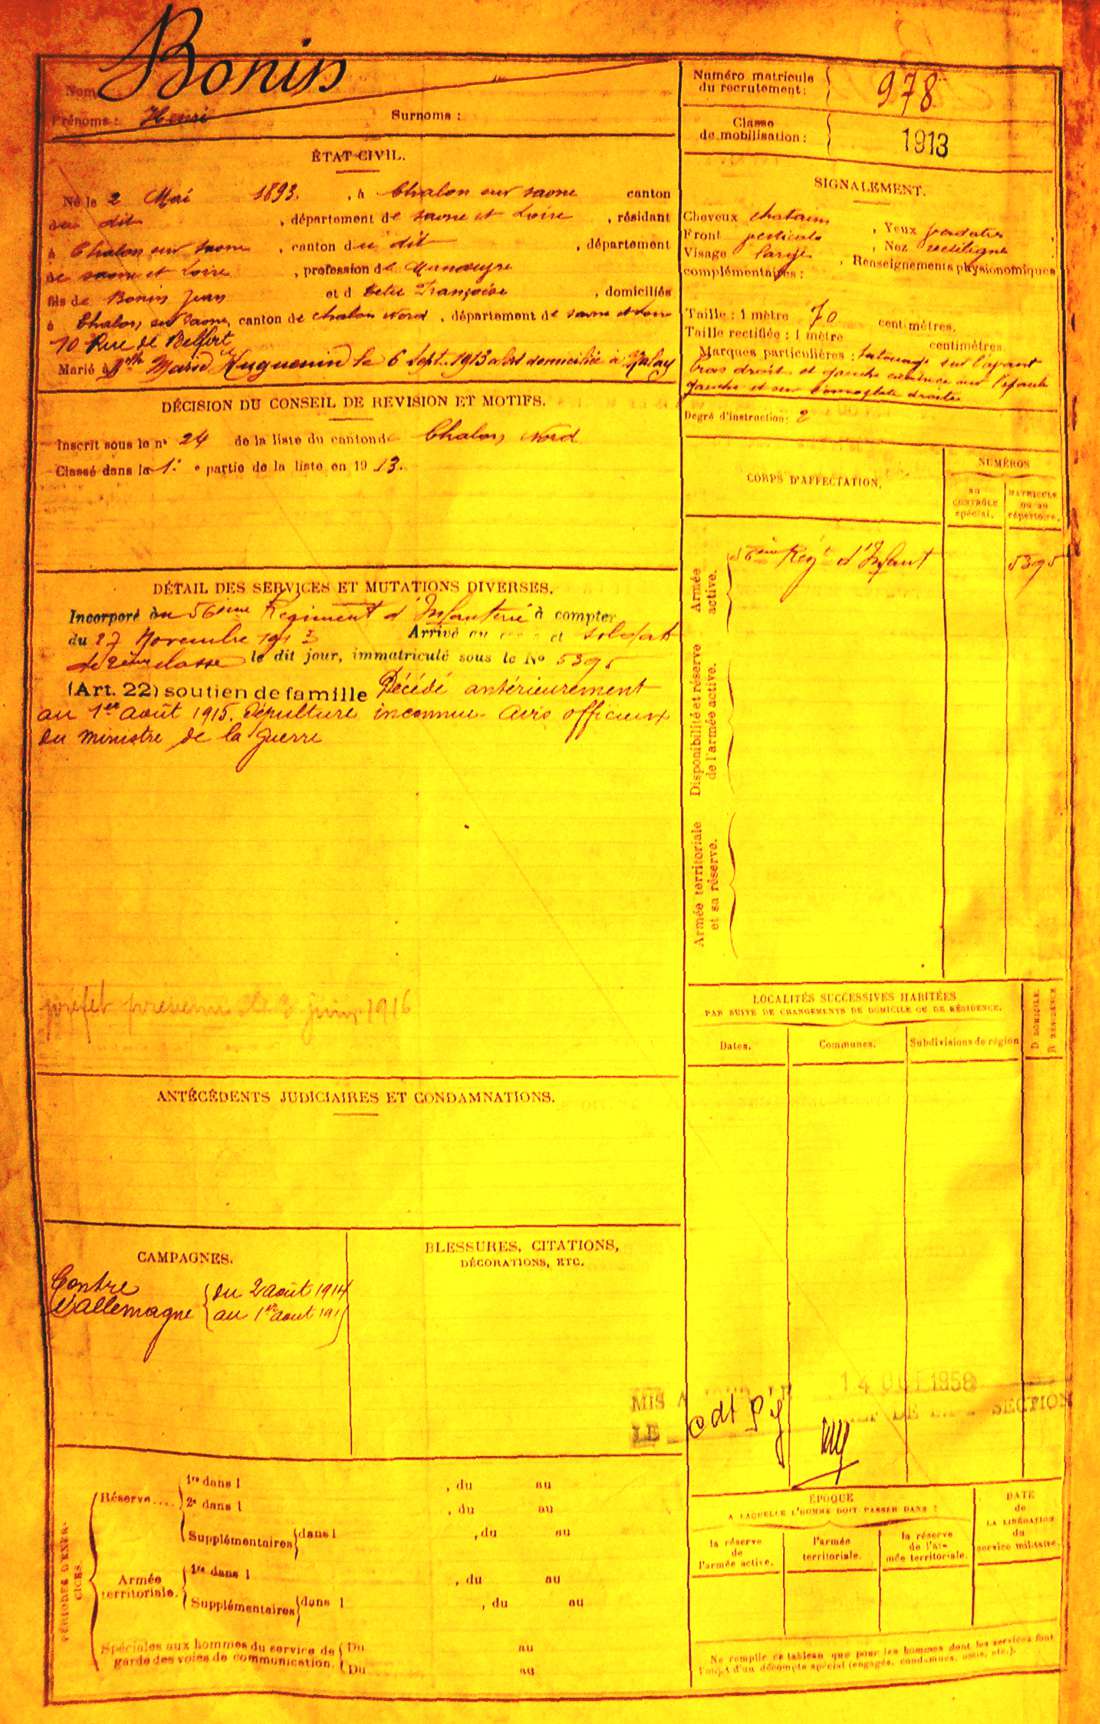 Nom Bonin
Prénoms : Henri Surnoms :
Numéro matricule du recrutement : 978
Classe de mobilisation : 1913
ÉTAT CIVIL.
Né le 2 Mai 1893, à Chalon sur Saone canton
dudit, département de Saone et Loire, résidant
à Chalon sur Saone, canton du dit, département
de Saone et Loire, profession de Manœuvre
fils de Bonin Jean et d Françoise, domiciliés
à Chalon sur Saone, canton de Chalon Nord, département de Saone et Loire
10 Rue de Belfort
Marié à Huguenin le 6 Sept. 1913 domiciliée à
SIGNALEMENT.
Cheveux chatains
Front verticale, Yeux
Visage large, Nez rectiligne
Renseignements physionomiques
complémentaires :
Taille : 1 mètre 70 centimètres.
Taille rectifiée : 1 mètre centimètres.
Marques particulières : tatouage sur l'avant
bras droit et gauche sur l'épaule
gauche et sur omoplate droite
Degré d'instruction : 2
DÉCISION DU CONSEIL DE REVISION ET MOTIFS.
Inscrit sous le n° 24 de la liste du canton de Chalon Nord
Classé dans la 1° e partie de la liste en 1913.
CORPS D'AFFECTATION.
NUMÉROS
AU CONTRÔLE spécial.
MATRICULE OU AU répertoire.
Armée active.
56ème Régt d'Infant 5395
Disponibilité et réserve de l'armée active.
Armée territoriale et sa réserve.
DÉTAIL DES SERVICES ET MUTATIONS DIVERSES.
Incorporé au 56ème Régiment d'Infanterie à compter
du 27 Novembre 1913 Arrivé au et soldat
de 2ème classe le dit jour, immatriculé sous le No 5395
(Art. 22) soutien de famille Décédé antérieurement
au 1er août 1915. Sépulture inconnue. Avis officieux
du ministre de la guerre
préfet prévenu le 3 juin 1916
LOCALITÉS SUCCESSIVES HABITÉES
PAR SUITE DE CHANGEMENTS DE DOMICILE OU DE RÉSIDENCE.
Dates. Communes. Subdivisions de région D DOMICILE. R RÉSIDENCE
ANTÉCÉDENTS JUDICIAIRES ET CONDAMNATIONS.
CAMPAGNES.
Contre l'allemagne { du 2 août 1914
au 1er août 1915
BLESSURES, CITATIONS,
DÉCORATIONS, ETC.
MIS A 14 OCT 1958
LE DE SECTION
PÉRIODES D'EXERCICES.
Réserve.... 1re dans l , du au
2e dans l , du au
Supplémentaires dans l , du au
Armée territoriale. 1re dans l , du au
Supplémentaires dans l , du au
Spéciales aux hommes du service de garde des voies de communication. Du au
Du au
ÉPOQUE
A LAQUELLE L'HOMME DOIT PASSER DANS :
la réserve de l'armée active.
l'armée territoriale.
la réserve de l'armée territoriale.
DATE de LA LIBÉRATION du service militaire.
Ne remplir ce tableau que pour les hommes dont les services font
l'objet d'un décompte spécial (engagés, condamnés, omis, etc.).